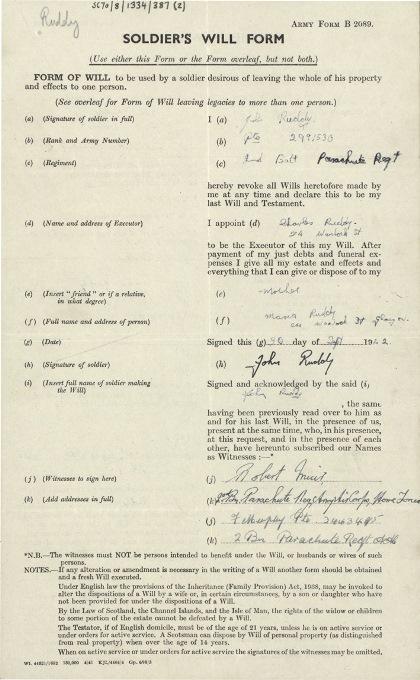 Ruddy
SC70/8/1334/387 (2)
ARMY FORM B 2089.
SOLDIER'S WILL FORM
(Use either this Form or the Form overleaf, but not both.)
FORM OF WILL to be used by a soldier desirous of leaving the whole of his property
and effects to one person.
(See overleaf for Form of Will leaving legacies to more than one person.)
(a) (Signature of soldier in full) I (a) Ruddy.
(b) (Rank and Army Number) (b) Pte
(c) (Regiment) (c) 2nd Batt Parachute Regt
hereby revoke all Wills heretofore made by
me at any time and declare this to be my
last Will and Testament.
(d) (Name and address of Executor) I appoint (d) Charles Ruddy.
St
to be the Executor of this my Will. After
payment of my just debts and funeral ex-
penses I give all my estate and effects and
everything that I can give or dispose of to my
(e) (Insert "friend" or if a relative,
in what degree) (e) Mother
(f) (Full name and address of person) (f) Ruddy
St
(g) (Date) Signed this (g) day of Sept 1942
(h) (Signature of soldier) (h) John Ruddy
(i) (Insert full name of soldier making
the Will) Signed and acknowledged by the said (i)
John Ruddy
, the same
having been previously read over to him as
and for his last Will, in the presence of us,
present at the same time, who, in his presence,
at his request, and in the presence of each
other, have hereunto subscribed our Names
as Witnesses :—*
(j) (Witnesses to sign here) (j) Robert Muir
(k) (Add addresses in full) (k) Bn. Parachute Reg. Corps, Home Forces
(j) F Murphy Pte
(k) 2 Bn Parachute Regt
*N.B.—The witnesses must NOT be persons intended to benefit under the Will, or husbands or wives of such
persons.
NOTES.—If any alteration or amendment is necessary in the writing of a Will another form should be obtained
and a fresh Will executed.
Under English law the provisions of the Inheritance (Family Provision) Act, 1938, may be invoked to
alter the dispositions of a Will by a wife or, in certain circumstances, by a son or daughter who have
not been provided for under the dispositions of a Will.
By the Law of Scotland, the Channel Islands, and the Isle of Man, the rights of the widow or children
to some portion of the estate cannot be defeated by a Will.
The Testator, if of English domicile, must be of the age of 21 years, unless he is on active service or
under orders for active service. A Scotsman can dispose by Will of personal property (as distinguished
from real property) when over the age of 14 years.
When on active service or under orders for active service the signatures of the witnesses may be omitted.